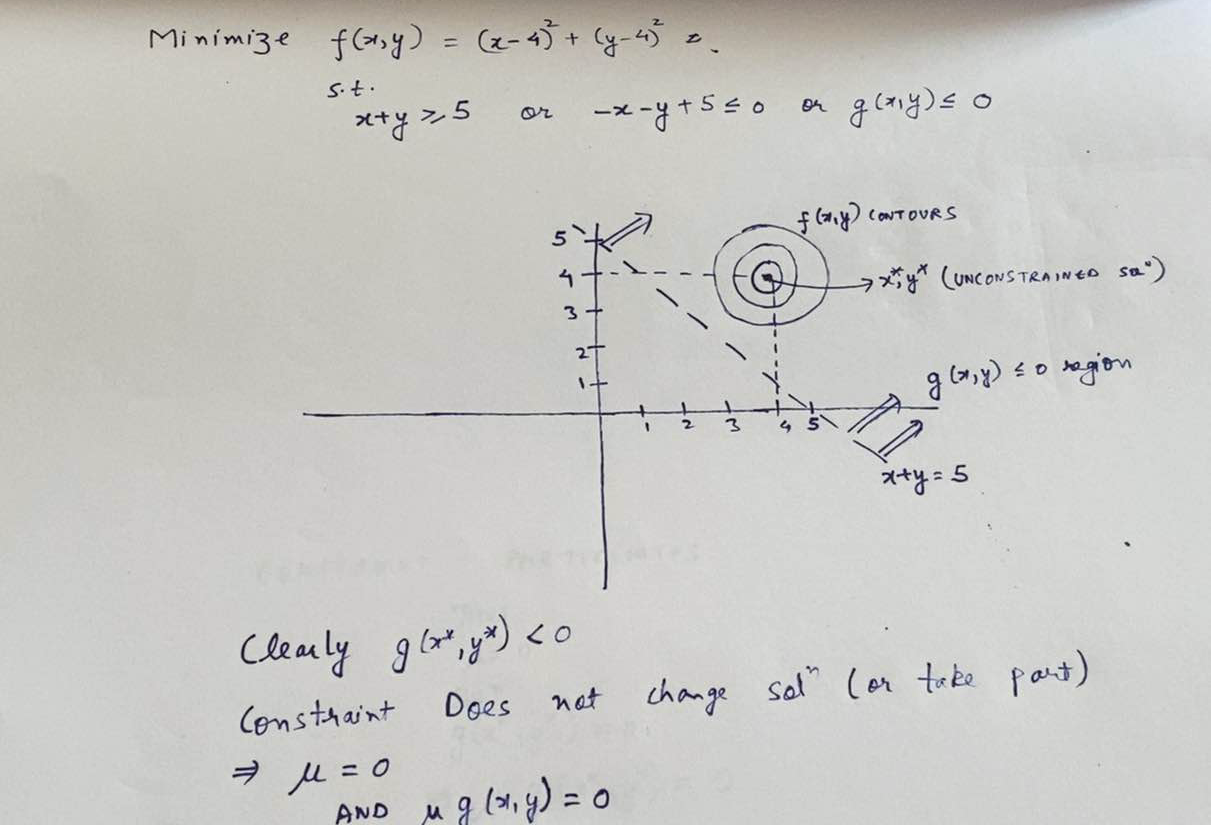 Minimize f(x,y) = (x-4)² + (y-4)²
s.t.
x+y ≥ 5 or -x-y+5 ≤ 0 or g(x,y) ≤ 0
f(x,y) CONTOURS
5
4
x*, y* (UNCONSTRAINED solⁿ)
3
2
1
g(x,y) ≤ 0 region
1 2 3 4 5
x+y = 5
Clearly g(x*, y*) < 0
Constraint Does not change solⁿ (or take part)
⇒ μ = 0
AND μ g(x,y) = 0